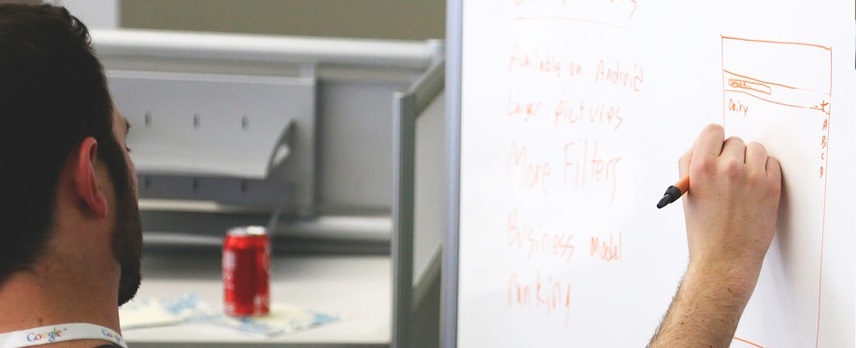 Available on Android
Larger pictures
More Filters
Business model
Ranking
Dairy
A
B
C
D
Google